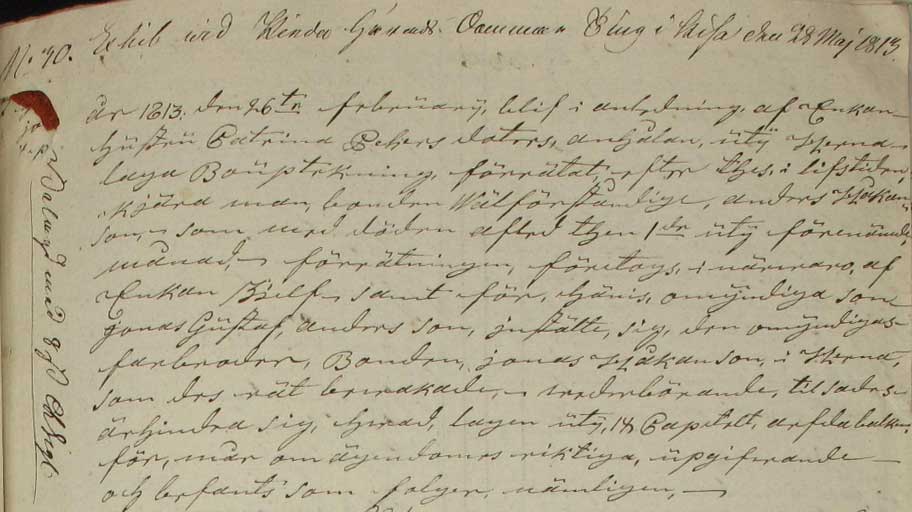 N:30. Exhib wid Kinda Härads Sommar Ting i Kisa den 28 Maj 1813
år 1813. den 26te februarÿ, blef i anledning, af Enkan
hustru Catrina Pehers dotters, anhålan, utÿ
laga Bouptekning, förrätat, efter thes, i lifstiden,
kjära man, bonden Wälförståndige, anders Håkan
son, som med döden afled then 1de utÿ förenämde
månad, förrätningen, företogs, i närwaro, af
Enkan Sielf samt för, häns, omÿndiga son
jonas Gustaf, anders son, instälte, sig, den omÿndigas
farbroder, Bonden, jonas Håkanson, i
som des rät bewakade, wederbörande, til sades
ärhindra sig, hwad, lagen utÿ, 18 Capitelt, ärfda balken
för, mår om ägendomes riktiga, upgifwande
och befants som folger, nämligen,